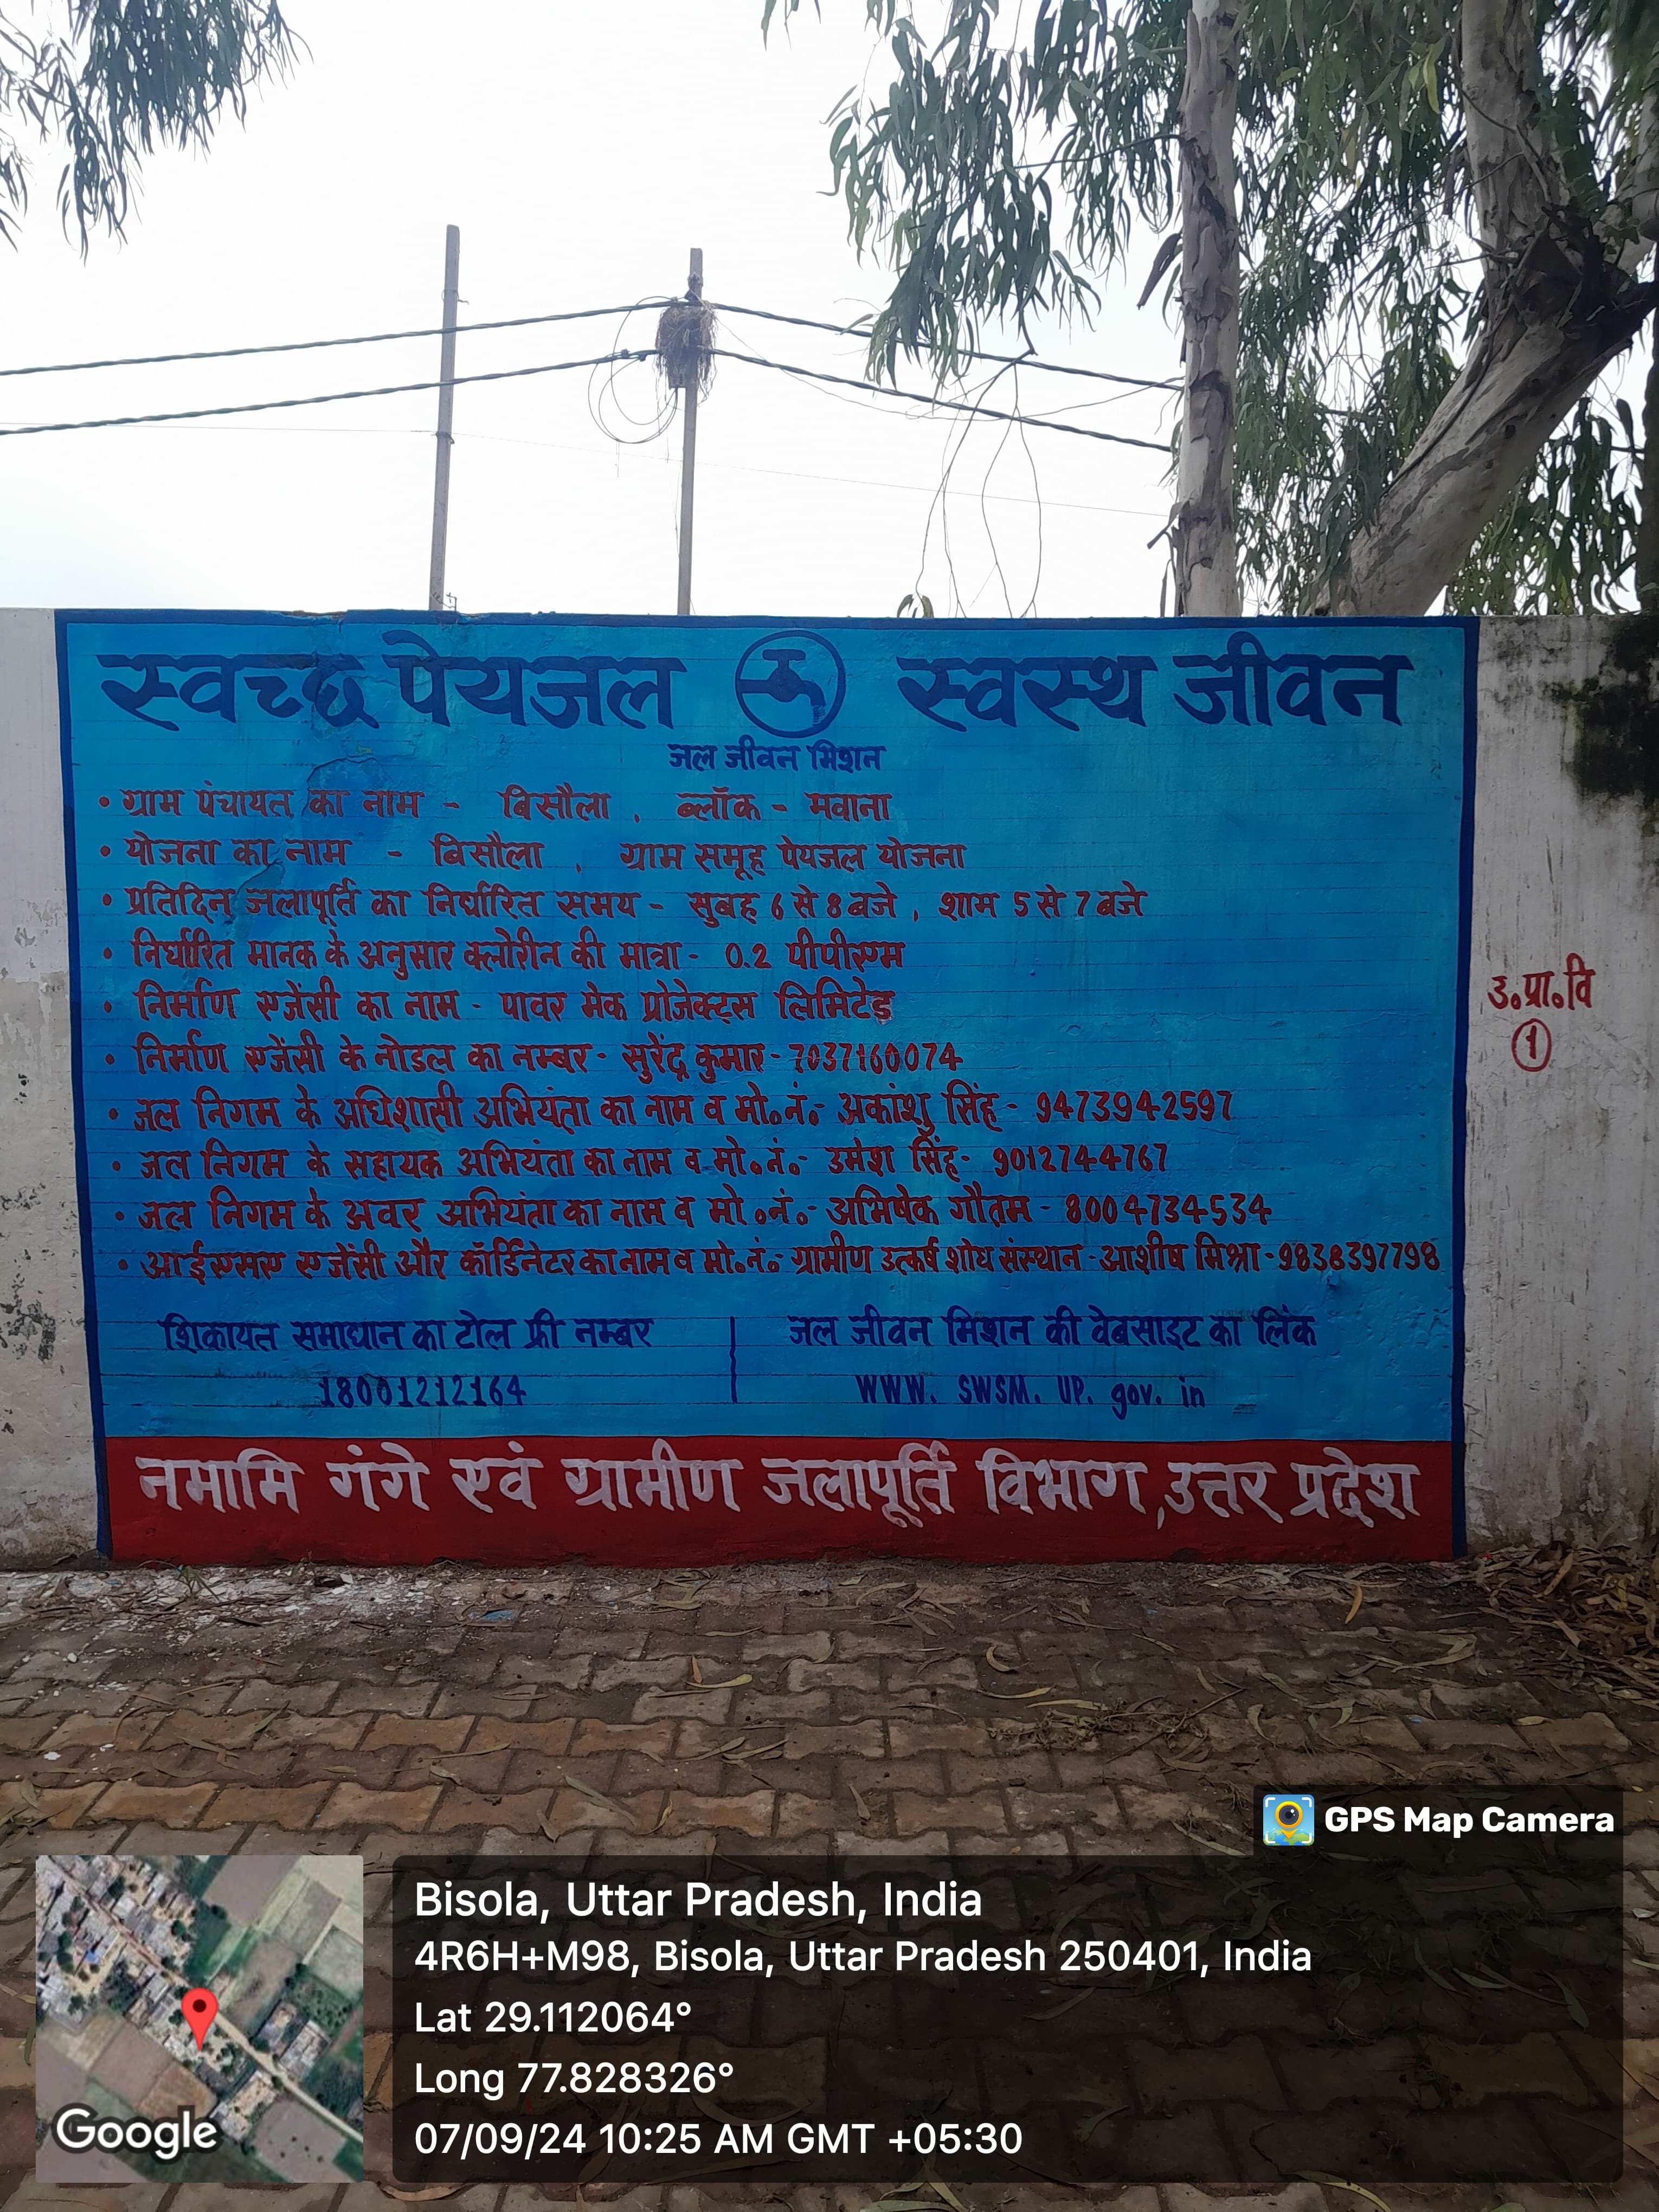 स्वच्छ पेयजल स्वस्थ जीवन
जल जीवन मिशन
• ग्राम पंचायत का नाम - बिसौला , ब्लॉक - मवाना
• योजना का नाम - बिसौला , ग्राम समूह पेयजल योजना
• प्रतिदिन जलापूर्ति का निर्धारित समय - सुबह 6 से 8 बजे , शाम 5 से 7 बजे
• निर्धारित मानक के अनुसार क्लोरीन की मात्रा - 0.2 पीपीएम
• निर्माण एजेंसी का नाम - पावर मेक प्रोजेक्ट्स लिमिटेड
• निर्माण एजेंसी के नोडल का नम्बर - सुरेंद्र कुमार - 7037160074
• जल निगम के अधिशासी अभियंता का नाम व मो०नं०- अकांशु सिंह - 9473942597
• जल निगम के सहायक अभियंता का नाम व मो०नं०- उमेश सिंह - 9012744767
• जल निगम के अवर अभियंता का नाम व मो०नं०- अभिषेक गौतम - 8004734534
• आईएसए एजेंसी और कॉर्डिनेटर का नाम व मो०नं०- ग्रामीण उत्कर्ष शोध संस्थान - आशीष मिश्रा - 9838397798
शिकायत समाधान का टोल फ्री नम्बर
18001212164
जल जीवन मिशन की वेबसाइट का लिंक
WWW. SWSM. UP. gov. in
नमामि गंगे एवं ग्रामीण जलापूर्ति विभाग, उत्तर प्रदेश
उ०प्रा०वि
1
GPS Map Camera
Google
Bisola, Uttar Pradesh, India
4R6H+M98, Bisola, Uttar Pradesh 250401, India
Lat 29.112064°
Long 77.828326°
07/09/24 10:25 AM GMT +05:30